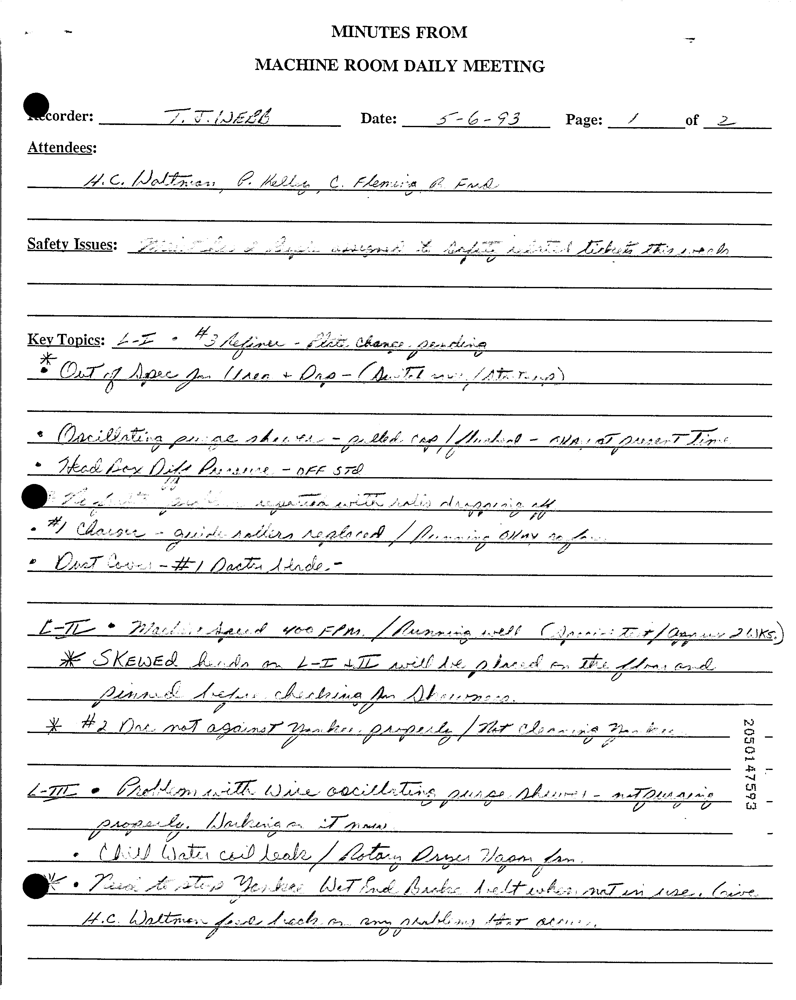 MINUTES FROM
MACHINE ROOM DAILY MEETING
Recorder: T. J. WEBB Date: 5-6-93 Page: 1 of 2
Attendees:
H.C. Waltman, P. Kelly, C. Fleming, R. Ford
Safety Issues: assigned to safety related tickets this week
Key Topics: L-I • #3 Refiner - Plate Change pending
* • Out of Spec for Urea + Dap - (
• Oscillating purge shower - pulled cap / flushed - okay at present time
• Head Box Diff Pressure - OFF STD
problem repeating with rolls dropping off
• #1 Charger - guide rollers replaced / Running okay so far
• Dust Cover - #1 Doctor blade -
L-II • Machine Speed 400 FPM / Running well ( / approx 2 WKS.)
* SKEWED heads on L-I + II will be placed on the floor and
pinned before checking for
* #2 Doc not against Yankee properly / Not cleaning Yankee
L-III • Problem with Wire oscillating purge shower - not purging
properly. Working on it now.
• Chill Water coil leak / Rotary Dryer fan.
* • Need to stop Yankee Wet End Broke belt when not in use. Give
H.C. Waltman feed back on any problems that occur.
2050147593